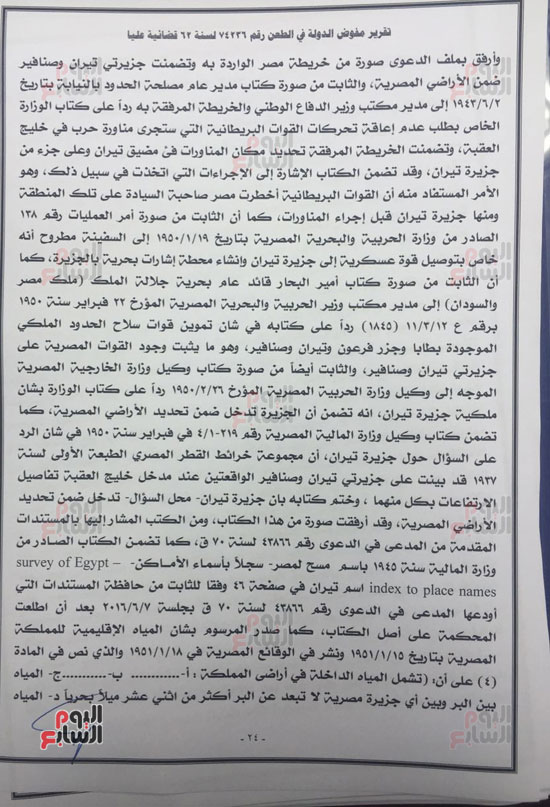 تقرير مفوض الدولة في الطعن رقم ٧٤٢٣٦ لسنة ٦٢ قضائية عليا
وأرفق بملف الدعوى صورة من خريطة مصر الواردة به وتضمنت جزيرتي تيران وصنافير
ضمن الأراضي المصرية، والثابت من صورة كتاب مدير عام مصلحة الحدود بالنيابة بتاريخ
١٩٤٣/٦/٢ إلى مدير مكتب وزير الدفاع الوطني والخريطة المرفقة به رداً على كتاب الوزارة
الخاص بطلب عدم إعاقة تحركات القوات البريطانية التي ستجرى مناورة حرب في خليج
العقبة، وتضمنت الخريطة المرفقة تحديد مكان المناورات فى مضيق تيران وعلى جزء من
جزيرة تيران، وقد تضمن الكتاب الإشارة إلى الإجراءات التي اتخذت في سبيل ذلك، وهو
الأمر المستفاد منه أن القوات البريطانية أخطرت مصر صاحبة السيادة على تلك المنطقة
ومنها جزيرة تيران قبل إجراء المناورات، كما أن الثابت من صورة أمر العمليات رقم ١٣٨
الصادر من وزارة الحربية والبحرية المصرية بتاريخ ١٩٥٠/١/١٩ إلى السفينة مطروح أنه
خاص بتوصيل قوة عسكرية إلى جزيرة تيران وانشاء محطة إشارات بحرية بالجزيرة، كما
أن الثابت من صورة كتاب أمير البحار قائد عام بحرية جلالة الملك (ملك مصر
والسودان) إلى مدير مكتب وزير الحربية والبحرية المصرية المؤرخ ٢٢ فبراير سنة ١٩٥٠
برقم ع ١١/٣/١٢ (١٨٤٥) رداً على كتابه في شان تموين قوات سلاح الحدود الملكي
الموجودة بطابا وجزر فرعون وتيران وصنافير، وهو ما يثبت وجود القوات المصرية على
جزيرتي تيران وصنافير، والثابت أيضاً من صورة كتاب وكيل وزارة الخارجية المصرية
الموجه إلى وكيل وزارة الحربية المصرية المؤرخ ١٩٥٠/٢/٢٦ رداً على كتاب الوزارة بشان
ملكية جزيرة تيران، انه تضمن أن الجزيرة تدخل ضمن تحديد الأراضي المصرية، كما
تضمن كتاب وكيل وزارة المالية المصرية رقم ٢١٩-٤/١ في فبراير سنة ١٩٥٠ في شان الرد
على السؤال حول جزيرة تيران، أن مجموعة خرائط القطر المصري الطبعة الأولى لسنة
١٩٣٧ قد بينت على جزيرتي تيران وصنافير الواقعتين عند مدخل خليج العقبة تفاصيل
الارتفاعات بكل منهما ، وختم كتابه بان جزيرة تيران- محل السؤال- تدخل ضمن تحديد
الأراضي المصرية، وقد أرفقت صورة من هذا الكتاب، ومن الكتب المشار إليها بالمستندات
المقدمة من المدعى في الدعوى رقم ٤٣٨٦٦ لسنة ٧٠ ق، كما تضمن الكتاب الصادر من
وزارة المالية سنة ١٩٤٥ باسم مسح لمصر- سجلاً بأسماء الأماكن- – survey of Egypt
index to place names اسم تيران في صفحة ٤٦ وفقا للثابت من حافظة المستندات التي
أودعها المدعى في الدعوى رقم ٤٣٨٦٦ لسنة ٧٠ ق بجلسة ٢٠١٦/٦/٧ بعد أن اطلعت
المحكمة على أصل الكتاب، كما صدر المرسوم بشان المياه الإقليمية للمملكة
المصرية بتاريخ ١٩٥١/١/١٥ ونشر في الوقائع المصرية في ١٩٥١/١/١٨ والذي نص في المادة
(٤) على أن: (تشمل المياه الداخلة في أراضى المملكة : أ-............ ب-............ج- المياه
بين البر وبين أي جزيرة مصرية لا تبعد عن البر أكثر من اثني عشر ميلاً بحرياً د- المياه
- ٢٤ -
اليوم السابع